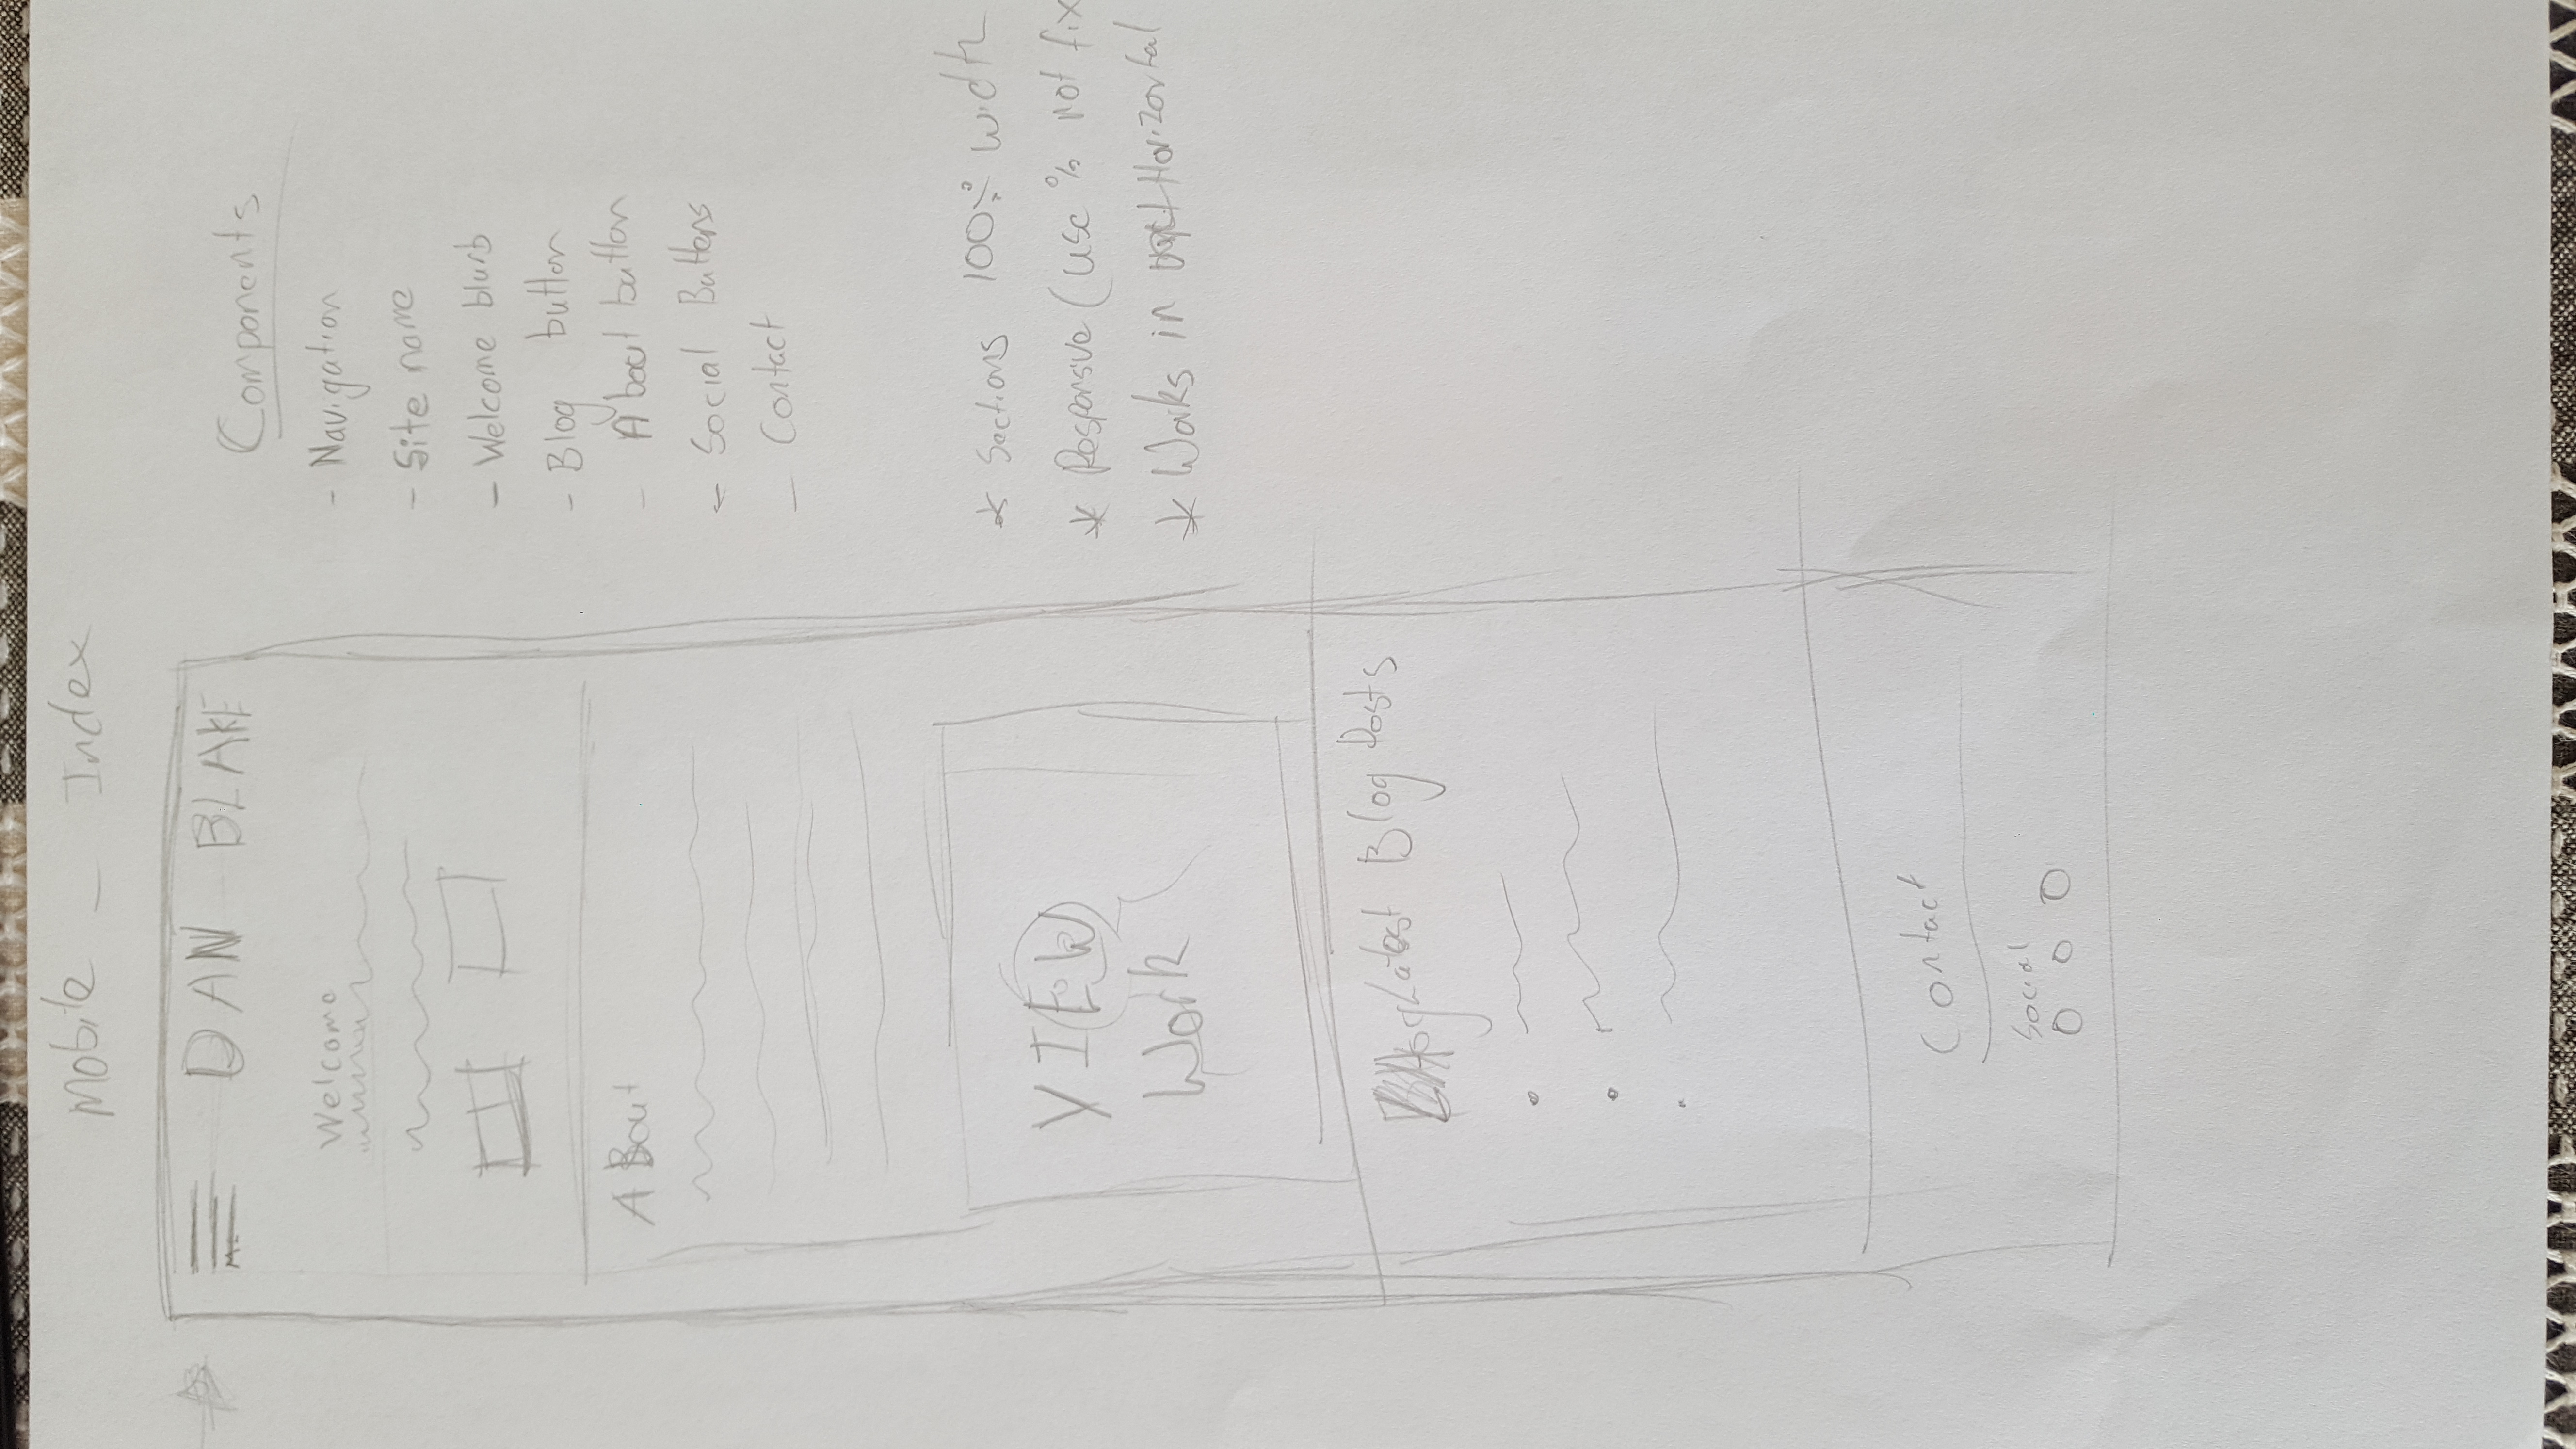 Mobile - Index
DAN BLAKE
Welcome
ABout
VIEW
Work
Latest Blog Posts
Contact
Social
Components
- Navigation
- Site name
- Welcome blurb
- Blog button
- About button
- Social Buttons
- Contact
* Sections 100% width
* Responsive (use % not fix
* Works in Horizontal